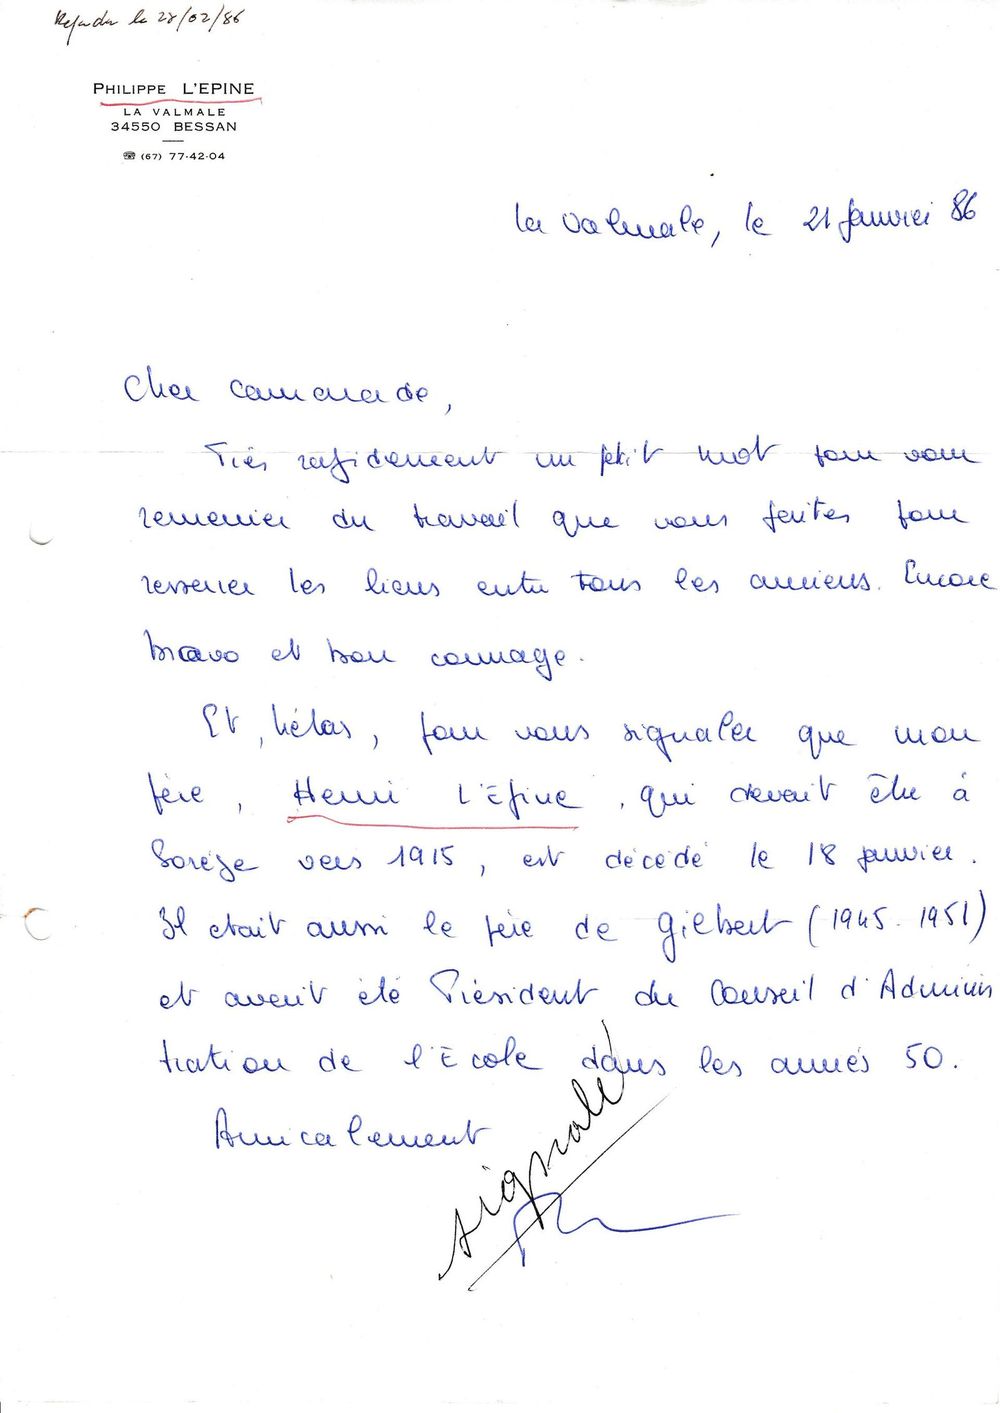 Répondu le 28/02/86
PHILIPPE L'EPINE
LA VALMALE
34550 BESSAN
☏ (67) 77-42-04
la Valmale, le 21 janvier 86
Cher camarade,
Très rapidement un petit mot pour vous
remercier du travail que vous faites pour
resserrer les liens entre tous les anciens. Encore
bravo et bon courage.
Et, hélas, pour vous signaler que mon
père, Henri L'Epine, qui devait être à
Sorèze vers 1915, est décédé le 18 janvier.
Il etait aussi le père de Gilbert (1945-1951)
et avait été Président du Conseil d'Adminis
tration de l'Ecole dans les années 50.
Amicalement
signalé